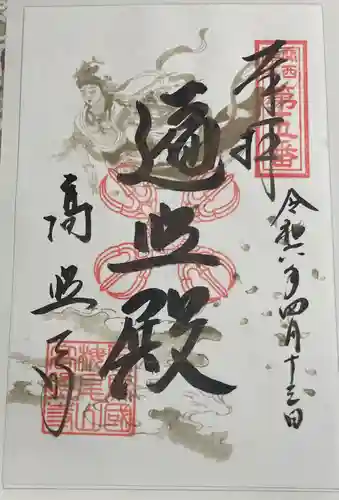 奉拝
関西
第五番
令和六年四月十三日
遍照殿
高照寺